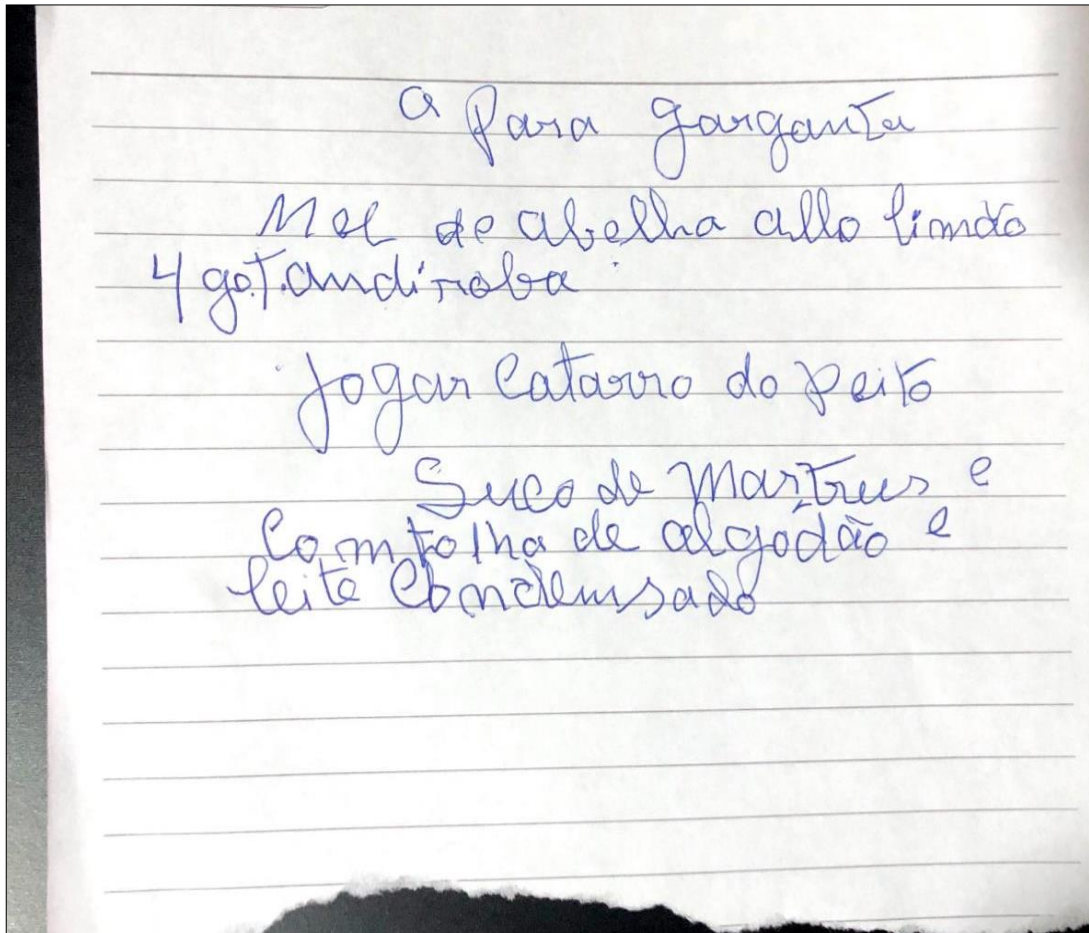 a Para garganta
Mel de abelha allo limão
4 got. andiroba
Jogar Catarro do peito
Suco de Mastrus e
Com folha de algodão e
leite Condensado